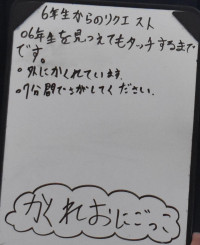 6年生からのリクエスト
○6年生を見つえてもタッチするまで
です。
○外にかくれています。
○7分間でさがしてください。
かくれおにごっこ